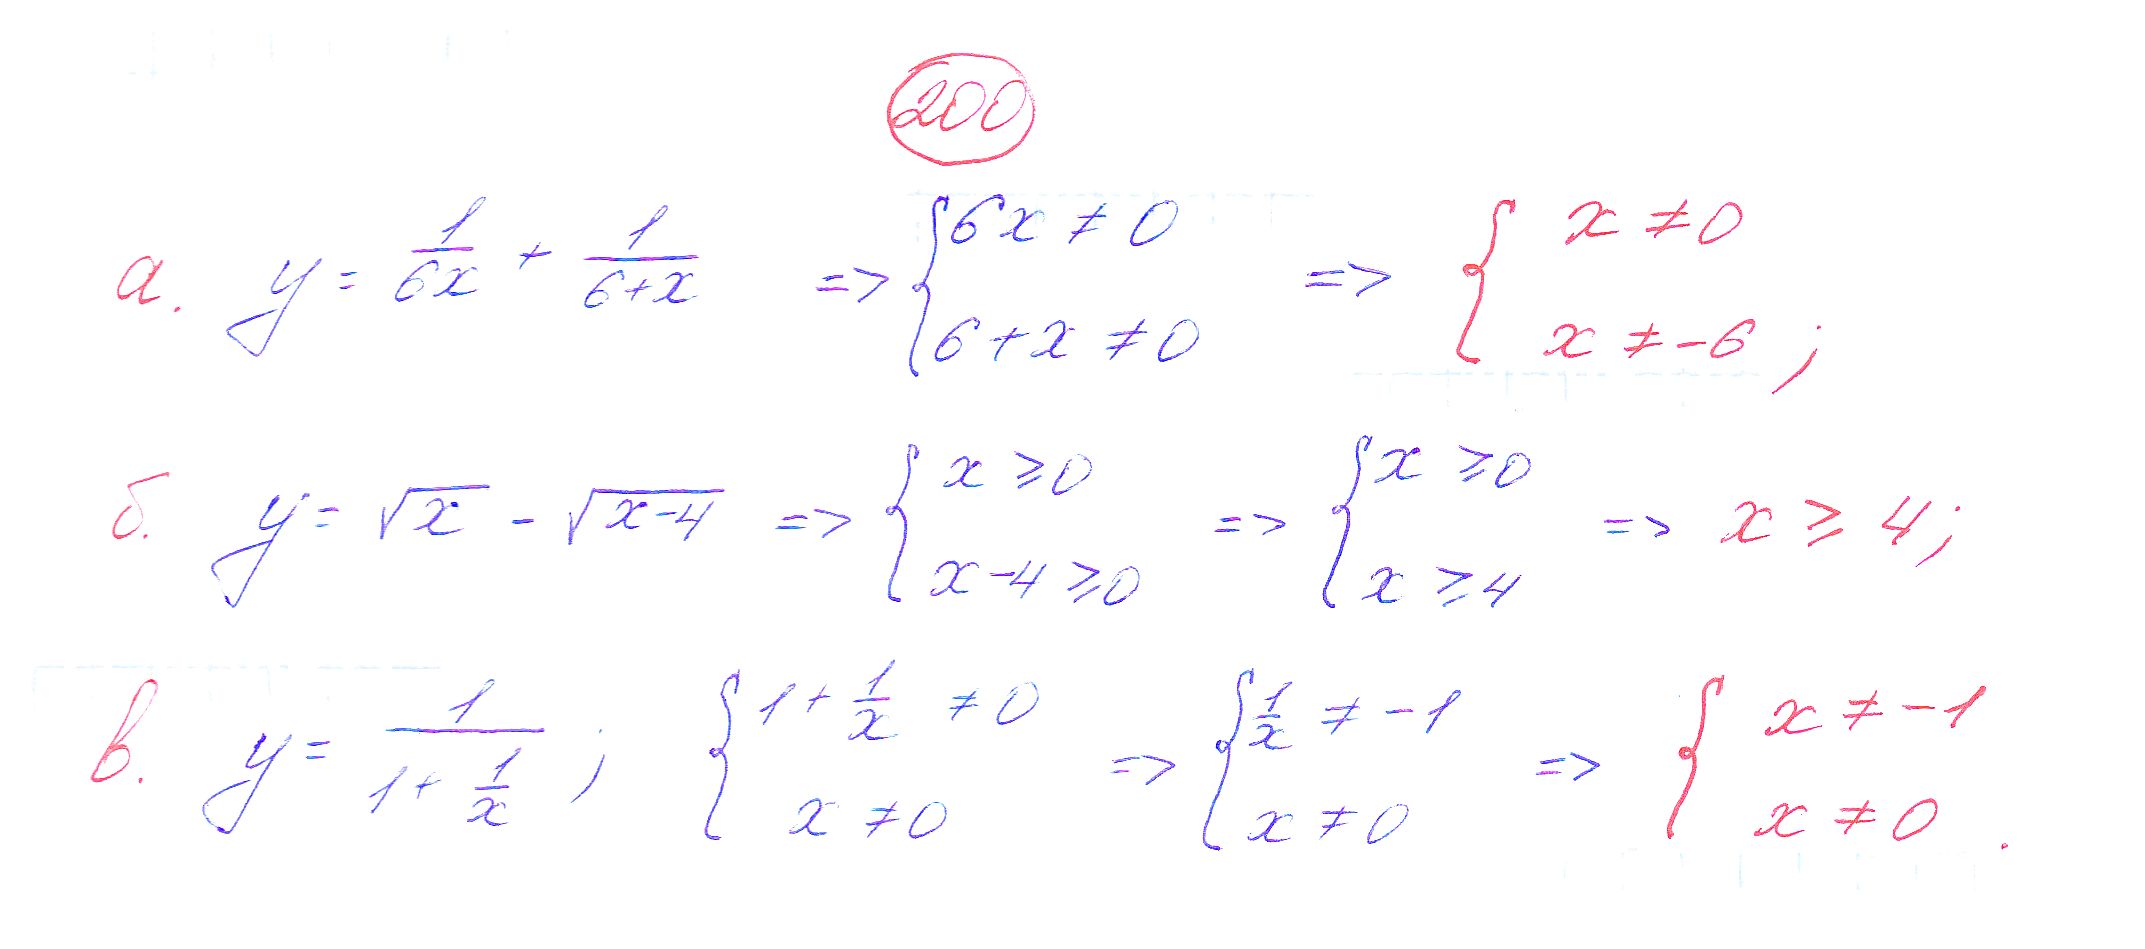 200
а. y = 1/(6x) + 1/(6+x) => { 6x ≠ 0; 6+x ≠ 0 => { x ≠ 0; x ≠ -6 ;
б. y = √x - √(x-4) => { x ≥ 0; x-4 ≥ 0 => { x ≥ 0; x ≥ 4 => x ≥ 4;
в. y = 1/(1 + 1/x) ; { 1 + 1/x ≠ 0; x ≠ 0 => { 1/x ≠ -1; x ≠ 0 => { x ≠ -1; x ≠ 0 .